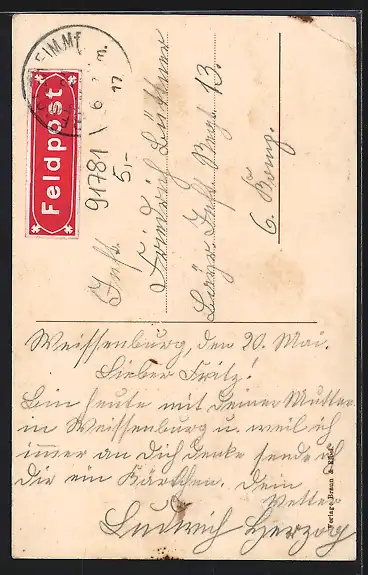 Feldpost
91781
5,-
Inft.
Friedrich
Bayr. Inft. Regt. 13.
6. Komp.
Weissenburg, den 20. Mai.
Lieber Fritz!
Bin heute mit deiner Mutter
in Weissenburg u. weil ich
immer an Dich denke sende ich
Dir ein Kärtchen. Dein
Vetter
Ludwich Herzog
Verlag: Braun &